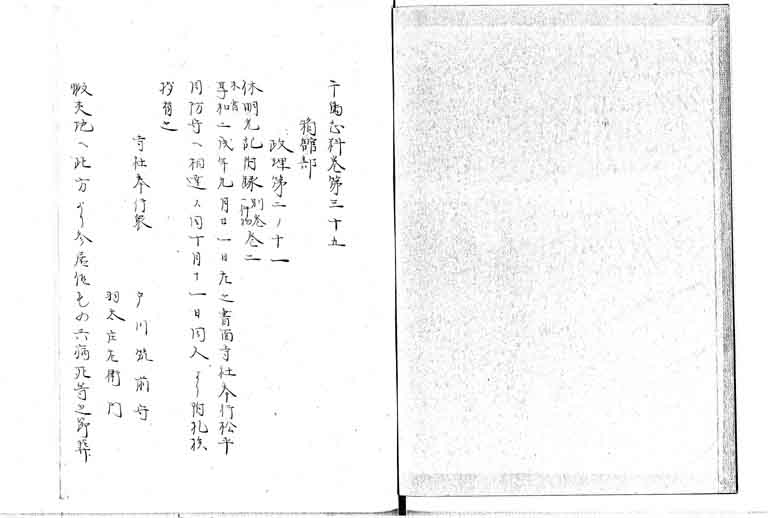 千島志料巻第三十五
箱館部
政理第二ノ十一
休明光記附録別巻巻二
享和二戌年九月廿一日左之書面寺社奉行松平
周防守へ相達ス同十月廿一日同人より附札
有之
寺社奉行衆
戸川筑前守
羽太庄左衛門
蝦夷地へ此方より参居候もの共病死等之節葬